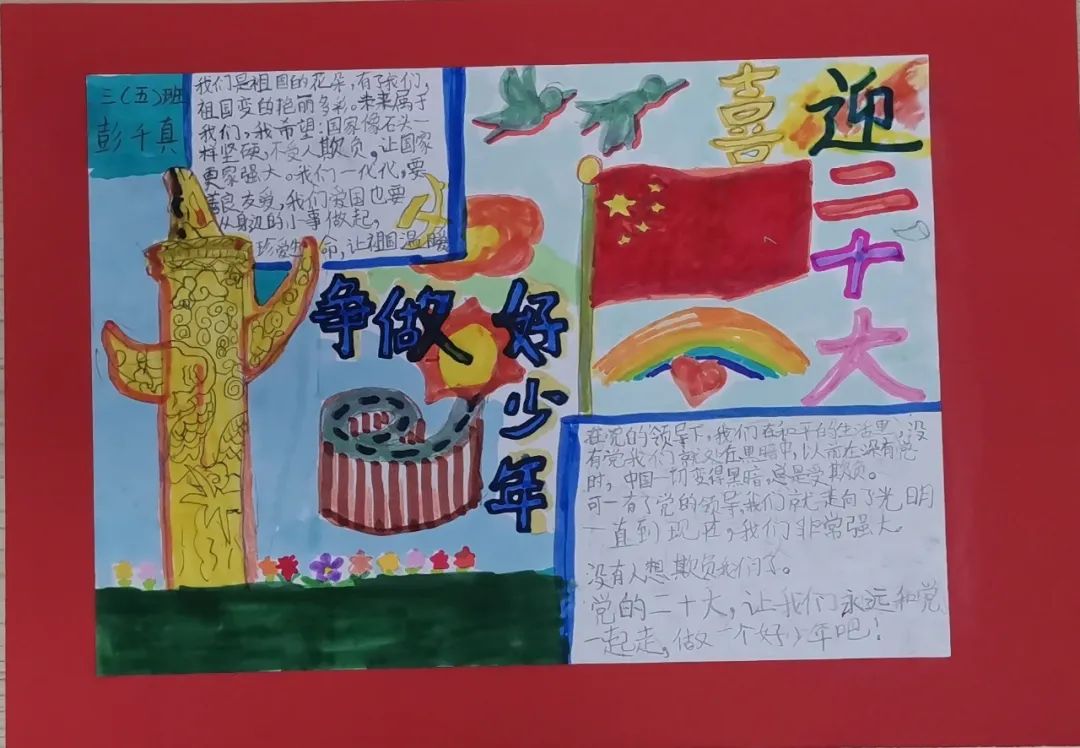 三(五)班
彭千真
我们是祖国的花朵,有了我们,
祖国变的艳丽多彩。未来属于
我们,我希望:国家像石头一
样坚硬,不受人欺负,让国家
更家强大。我们一代代,要
良友爱,我们爱国也要
从身边的小事做起,
珍爱 命,让祖国温暖
喜迎
二十大
争做好
少年
在党的领导下,我们在和平的生活里,没
有党我们就 在黑暗中,以前在没有党
时,中国一切变得黑暗,总是受欺负。
可一有了党的领导,我们就走向了光明
一直到现在,我们非常强大。
没有人想欺负我们了。
党的二十大,让我们永远和党
一起走,做一个好少年吧!